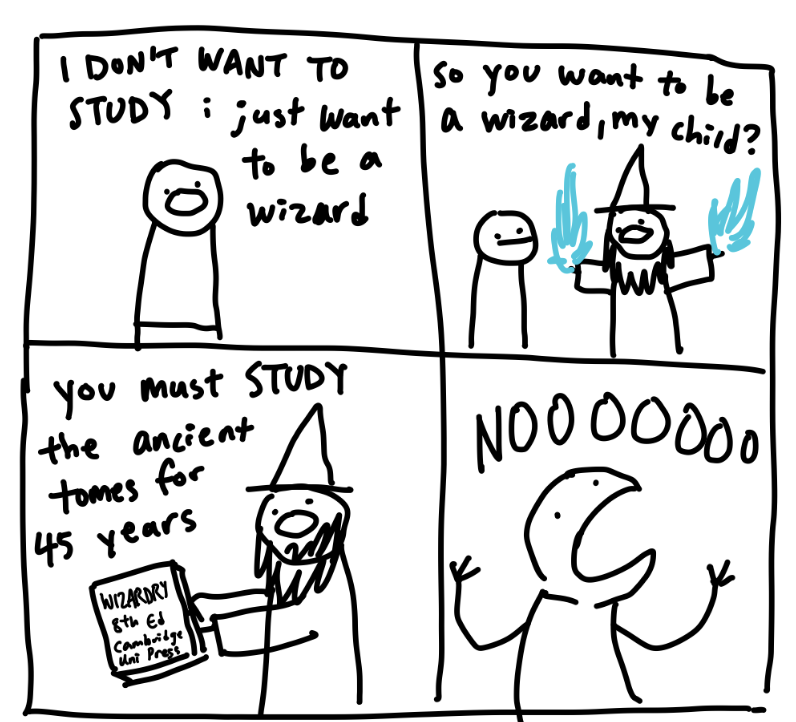 I DON'T WANT TO
STUDY i just want
to be a
wizard
So you want to be
a wizard, my child?
you must STUDY
the ancient
tomes for
45 years
WIZARDRY
8th Ed
Cambridge
Uni Press
NOOOOOOOO